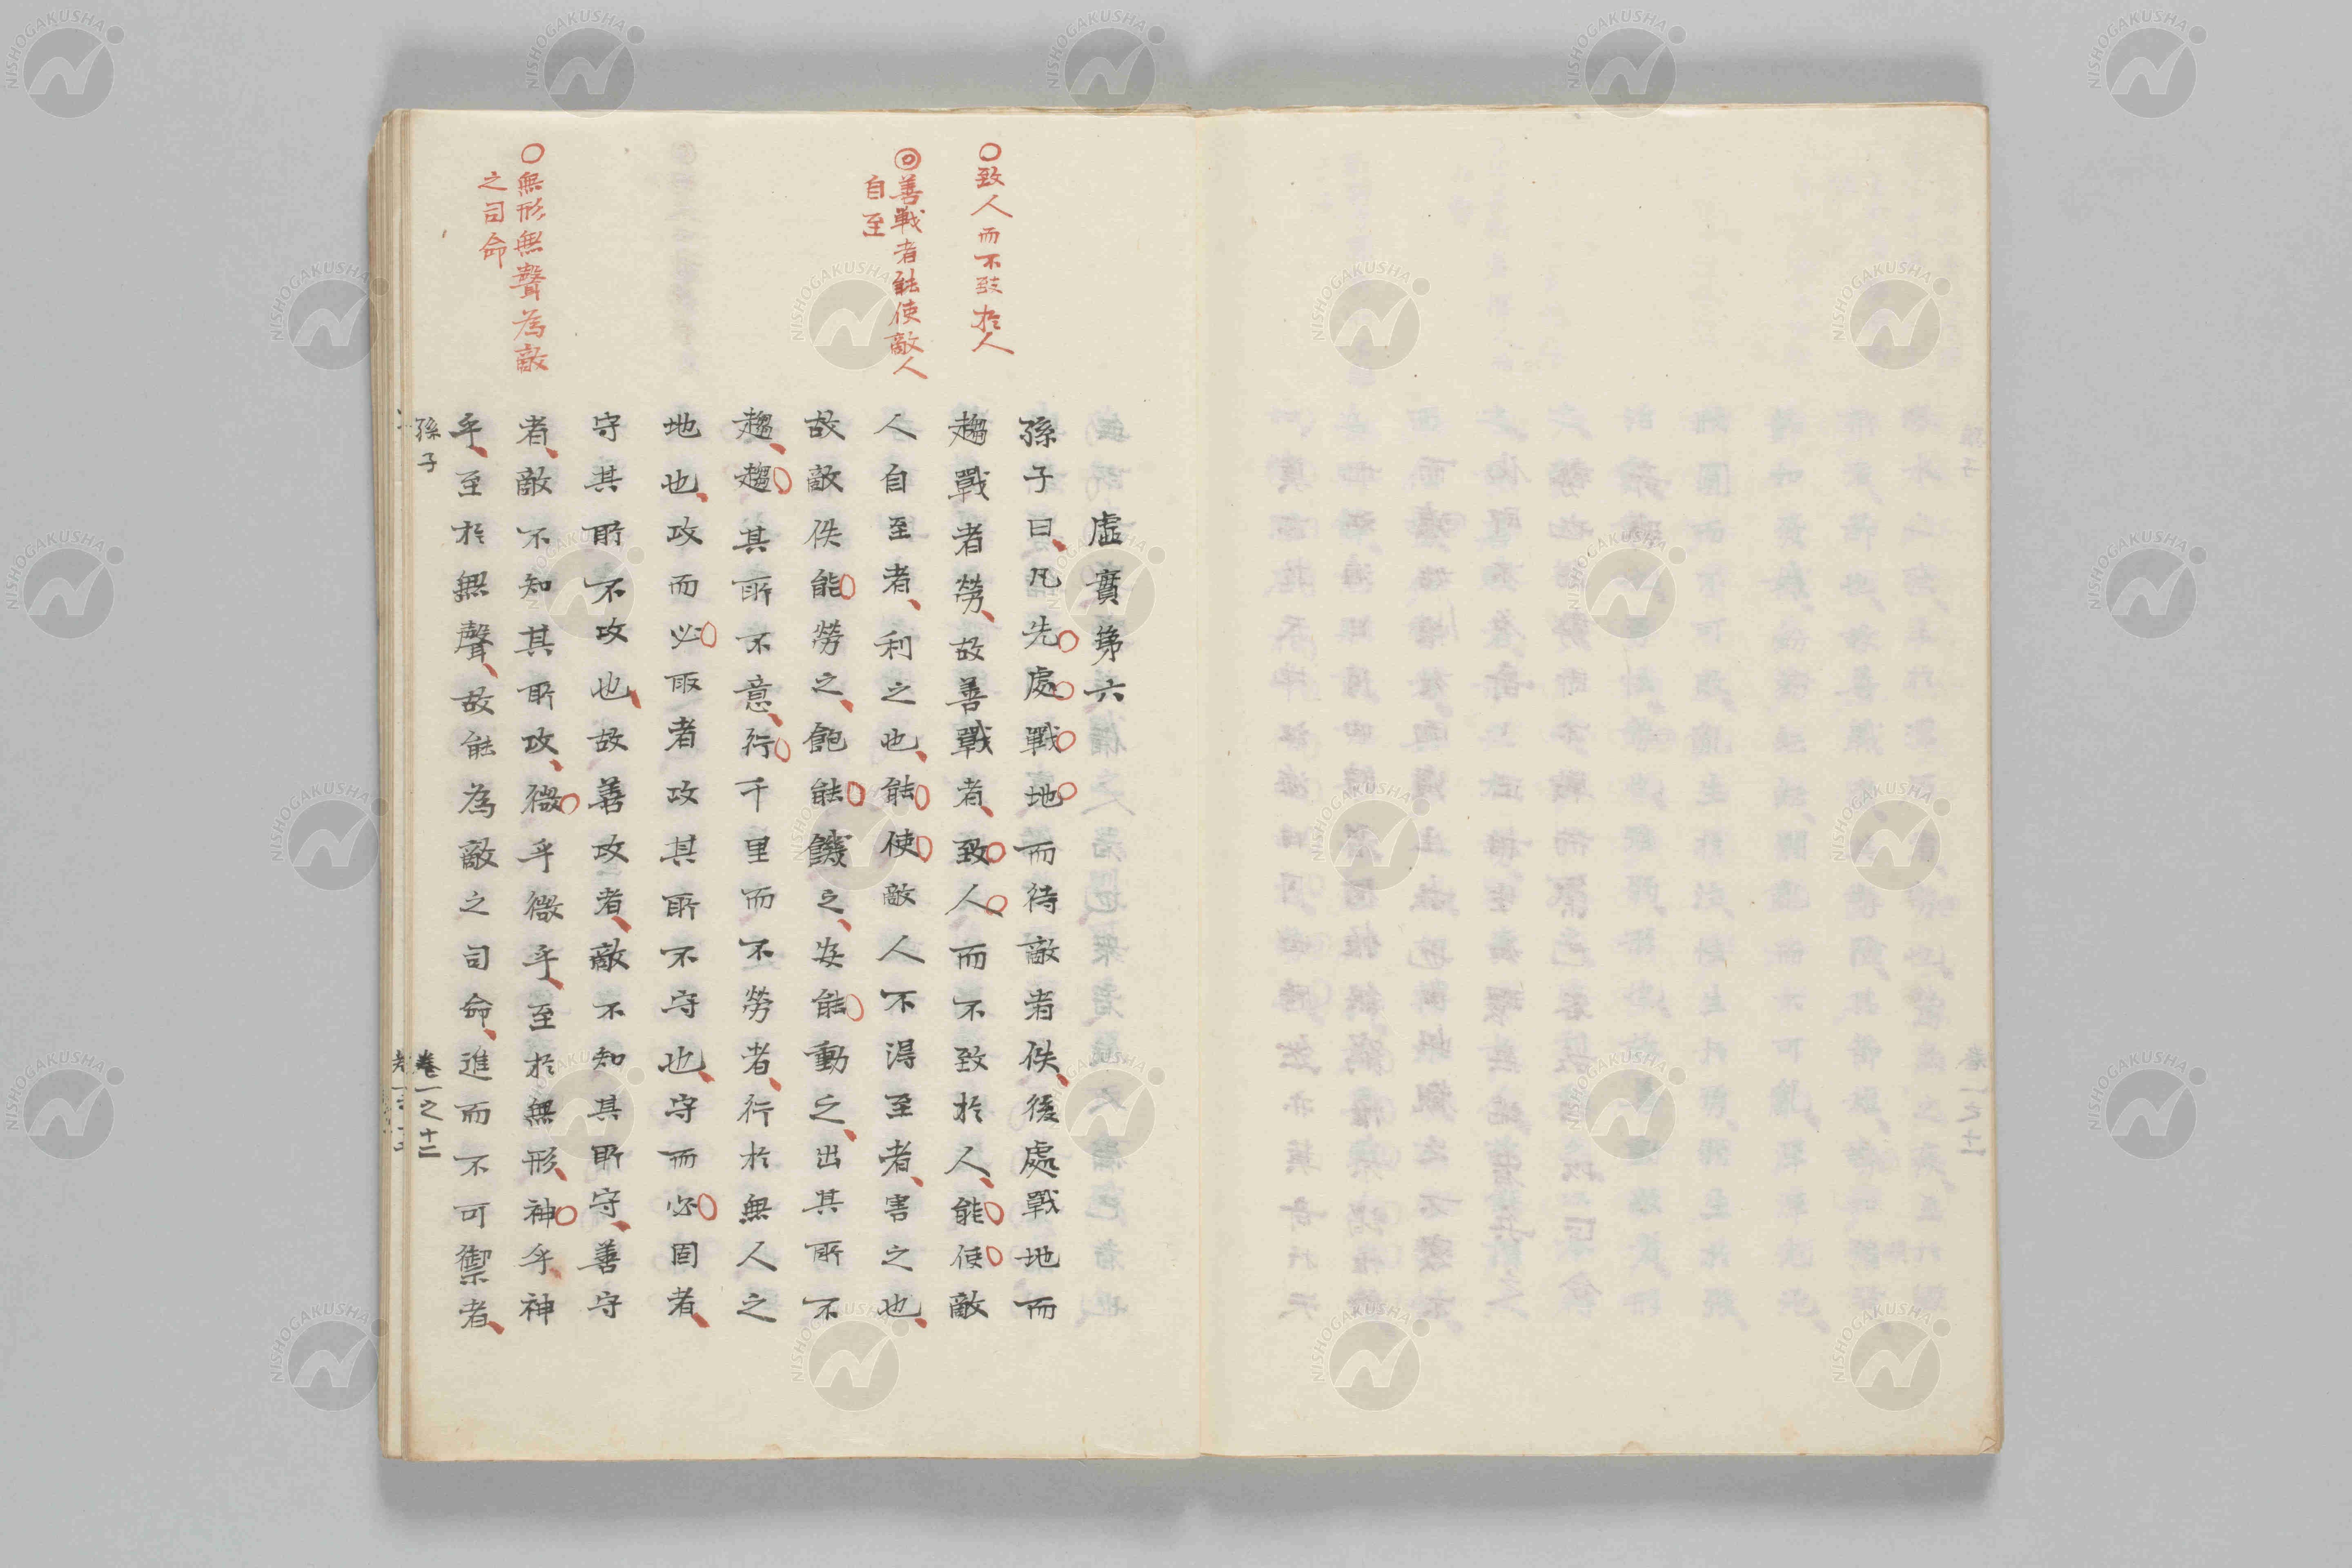 虛實第六
孫子曰凡先處戰地而待敵者佚後處戰地而
趨戰者勞故善戰者致人而不致於人能使敵
人自至者利之也能使敵人不得至者害之也
故敵佚能勞之飽能饑之安能動之出其所不
趨趨其所不意行千里而不勞者行於無人之
地也攻而必取者攻其所不守也守而必固者
守其所不攻也故善攻者敵不知其所守善守
者敵不知其所攻微乎微乎至於無形神乎神
乎至於無聲故能為敵之司命進而不可禦者
孫子 卷一之十二
○致人而不致於人
◎善戰者能使敵人
自至
○無形無聲為敵
之司命
NISHOGAKUSHA